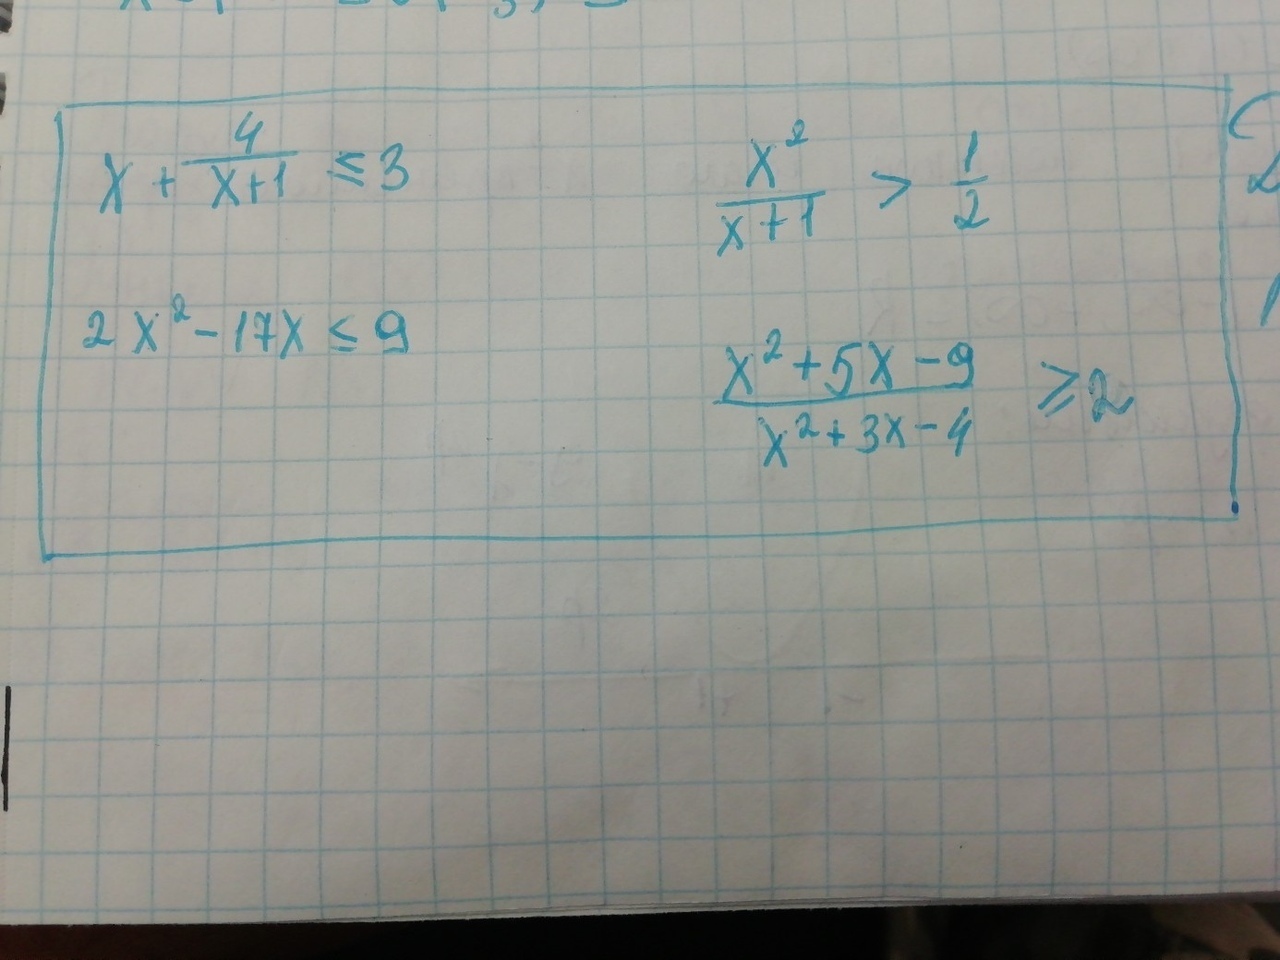 x + 4/(x+1) ≤ 3
x²/(x+1) > 1/2
2x² - 17x ≤ 9
(x² + 5x - 9)/(x² + 3x - 4) ≥ 2